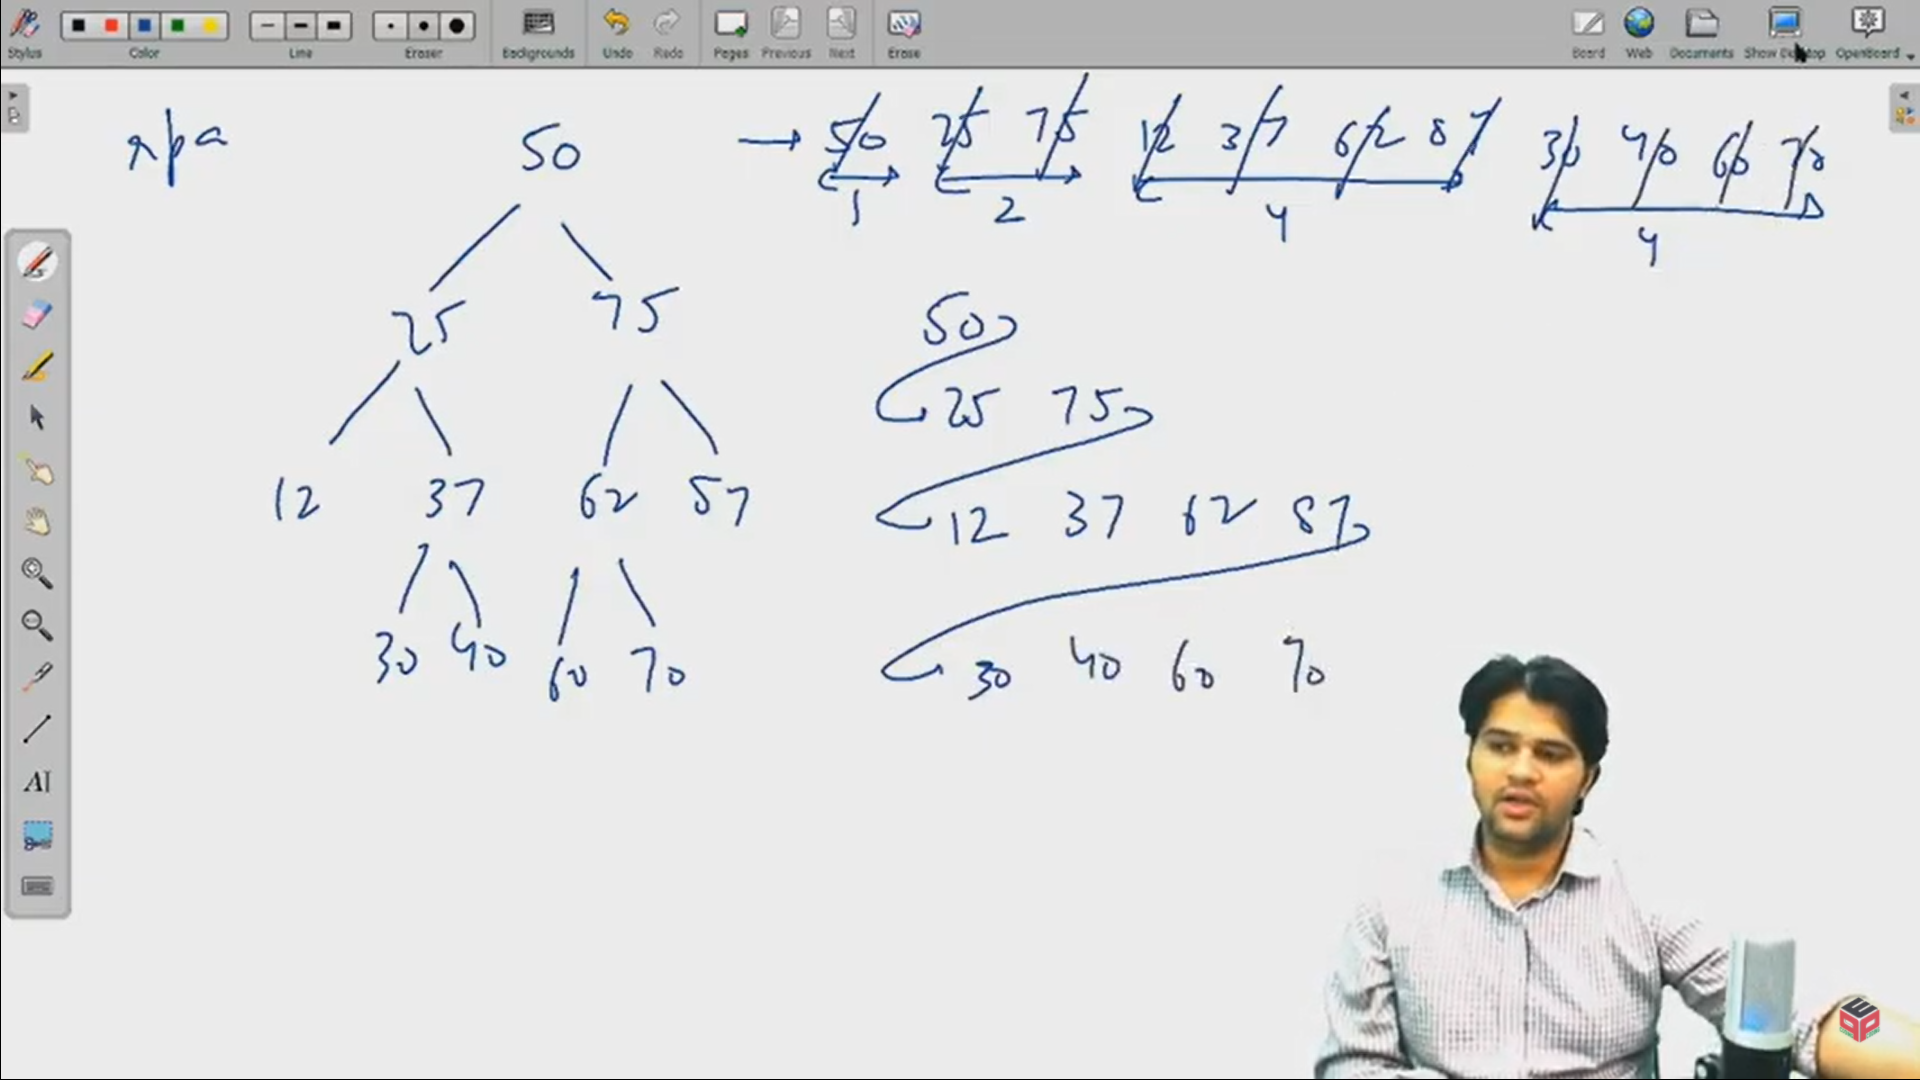 Stylus Color Line Eraser Backgrounds Undo Redo Pages Previous Next Erase Board Web Documents Show Desktop OpenBoard
rpa
50 → 50 25 75 12 37 62 87 30 40 60 70
1 2 4 4
25 75
12 37 62 57
30 40 60 70
50
25 75
12 37 62 87
30 40 60 70
AI